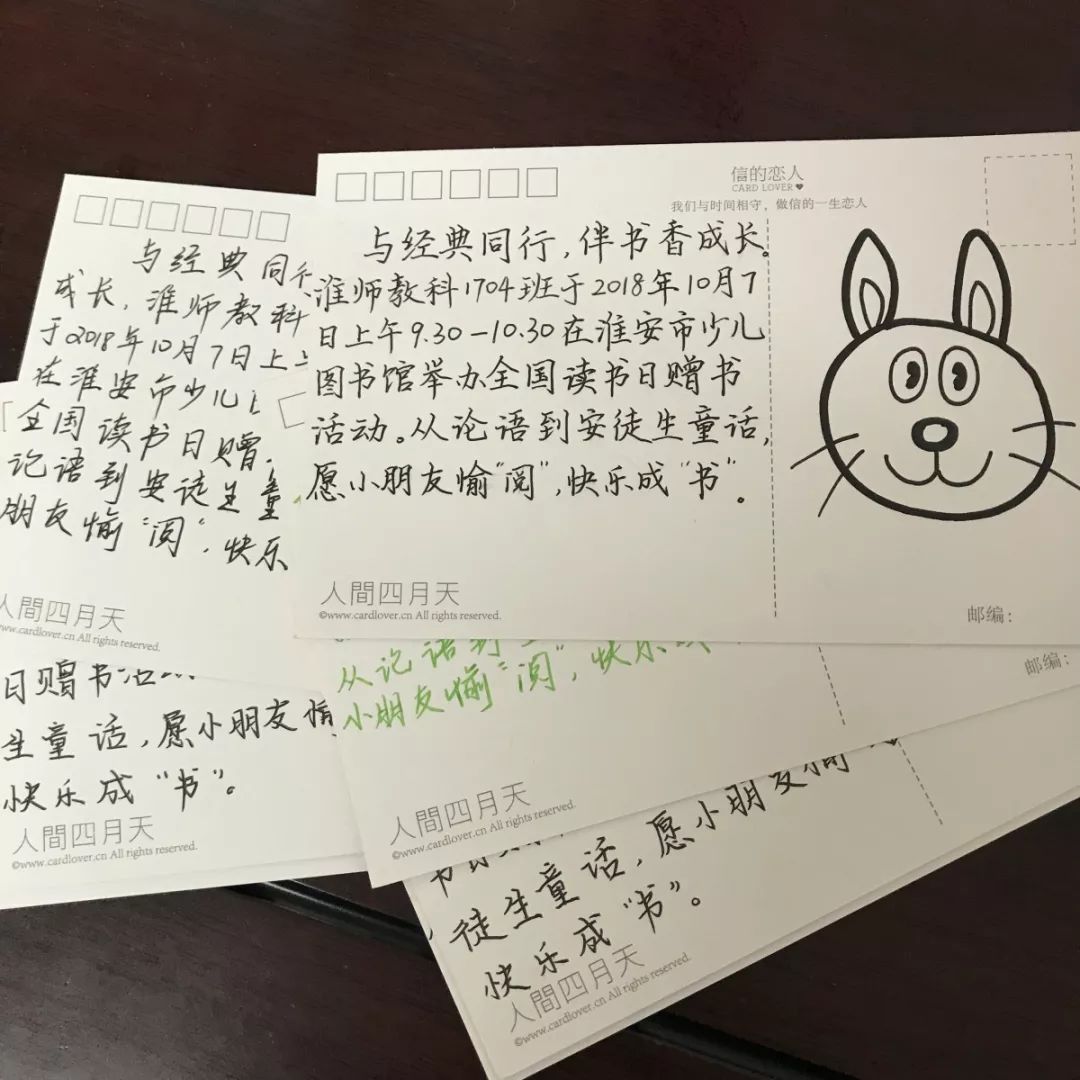 信的恋人
CARD LOVER
我们与时间相守，做信的一生恋人
与经典同行，伴书香成长。
淮师教科1704班于2018年10月7
日上午9.30-10.30在淮安市少儿
图书馆举办全国读书日赠书
活动。从论语到安徒生童话，
愿小朋友愉“阅”，快乐成“书”。
人間四月天
©www.cardlover.cn All rights reserved.
邮编：
与经典同行
成长，淮师教科
于2018年10月7日上
在淮安市少儿
全国读书日赠
论语到安徒生童
朋友愉“阅”，快乐
人間四月天
www.cardlover.cn All rights reserved.
日赠书活
生童话，愿小朋友愉
快乐成“书”。
人間四月天
©www.cardlover.cn All rights reserved.
从论语到
小朋友愉“阅”，快乐成
邮编：
人間四月天
©www.cardlover.cn All rights reserved.
徒生童话，愿小朋友愉
快乐成“书”。
人間四月天
©www.cardlover.cn All rights reserved.